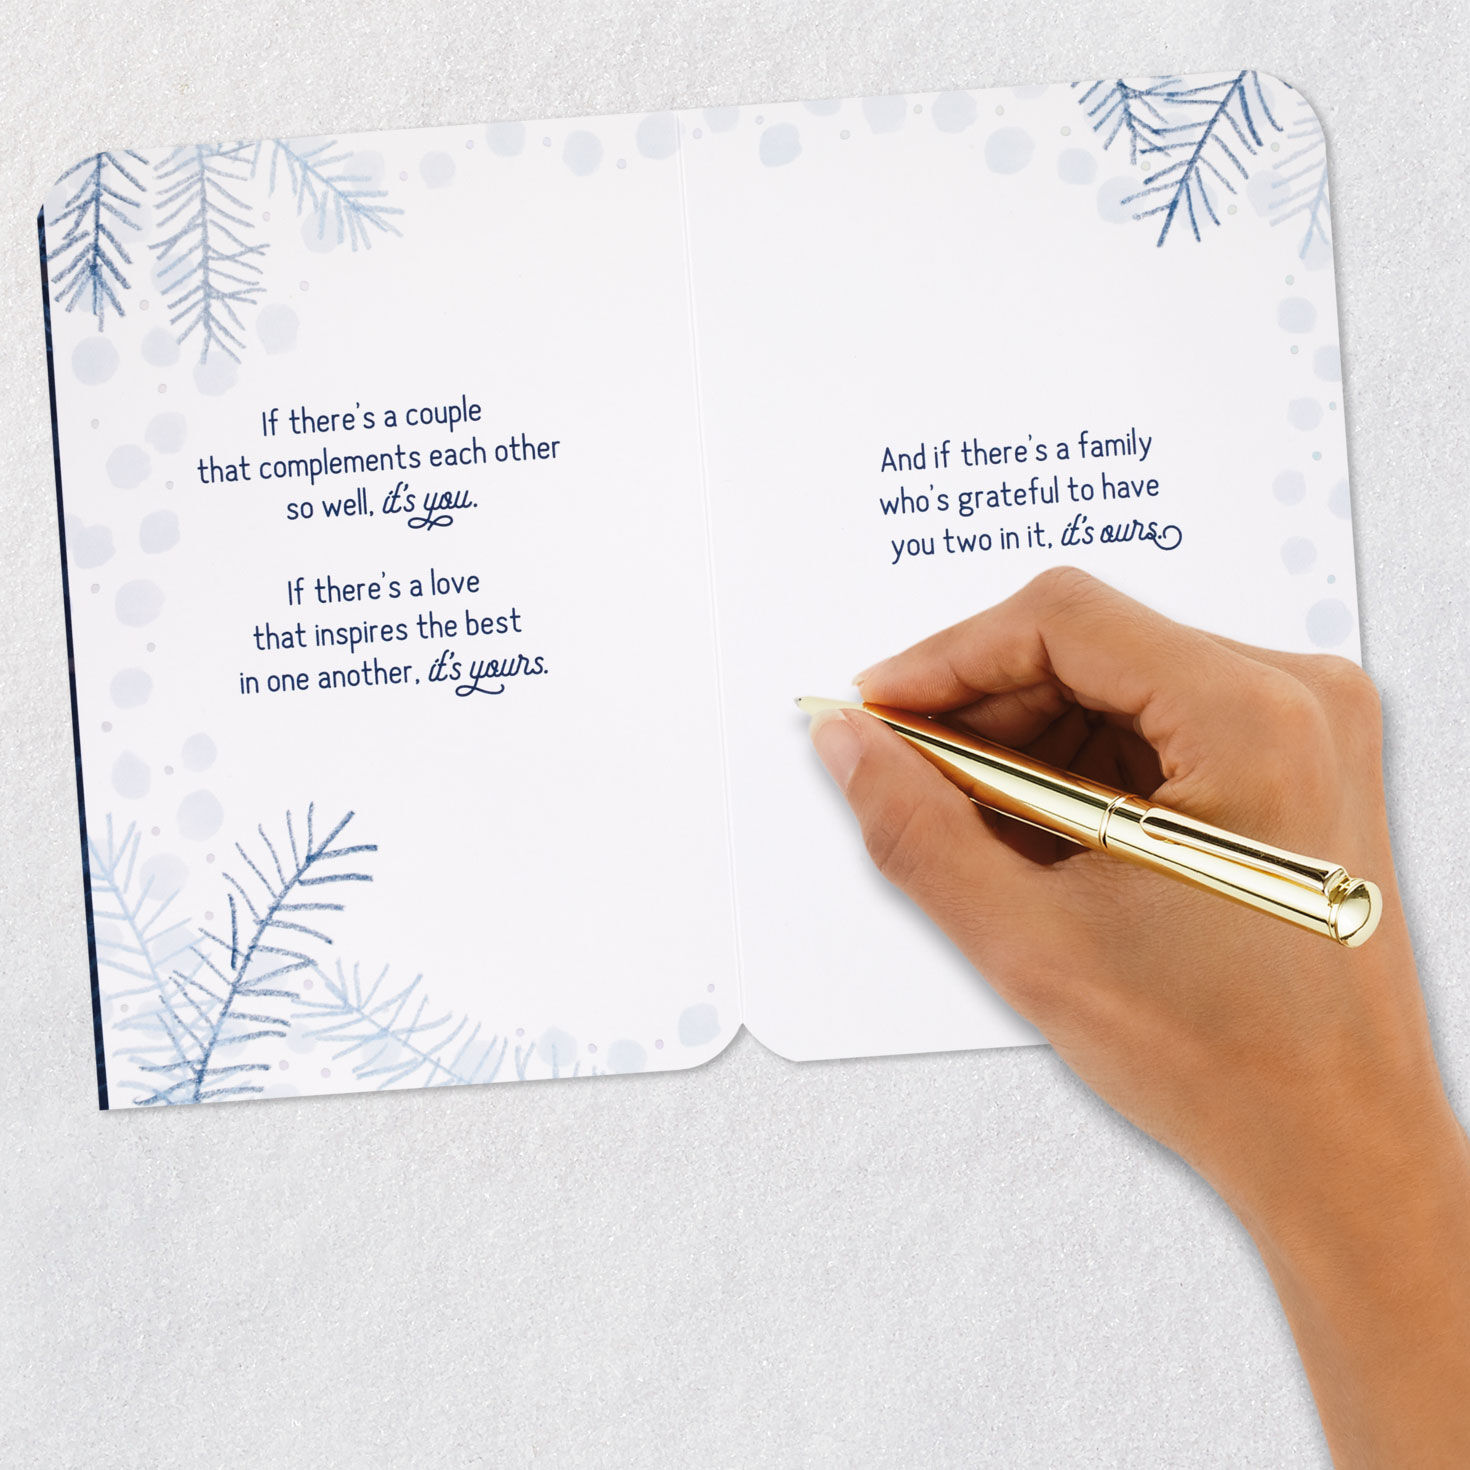 If there's a couple
that complements each other
so well, it's you.
If there's a love
that inspires the best
in one another, it's yours.
And if there's a family
who's grateful to have
you two in it, it's ours.